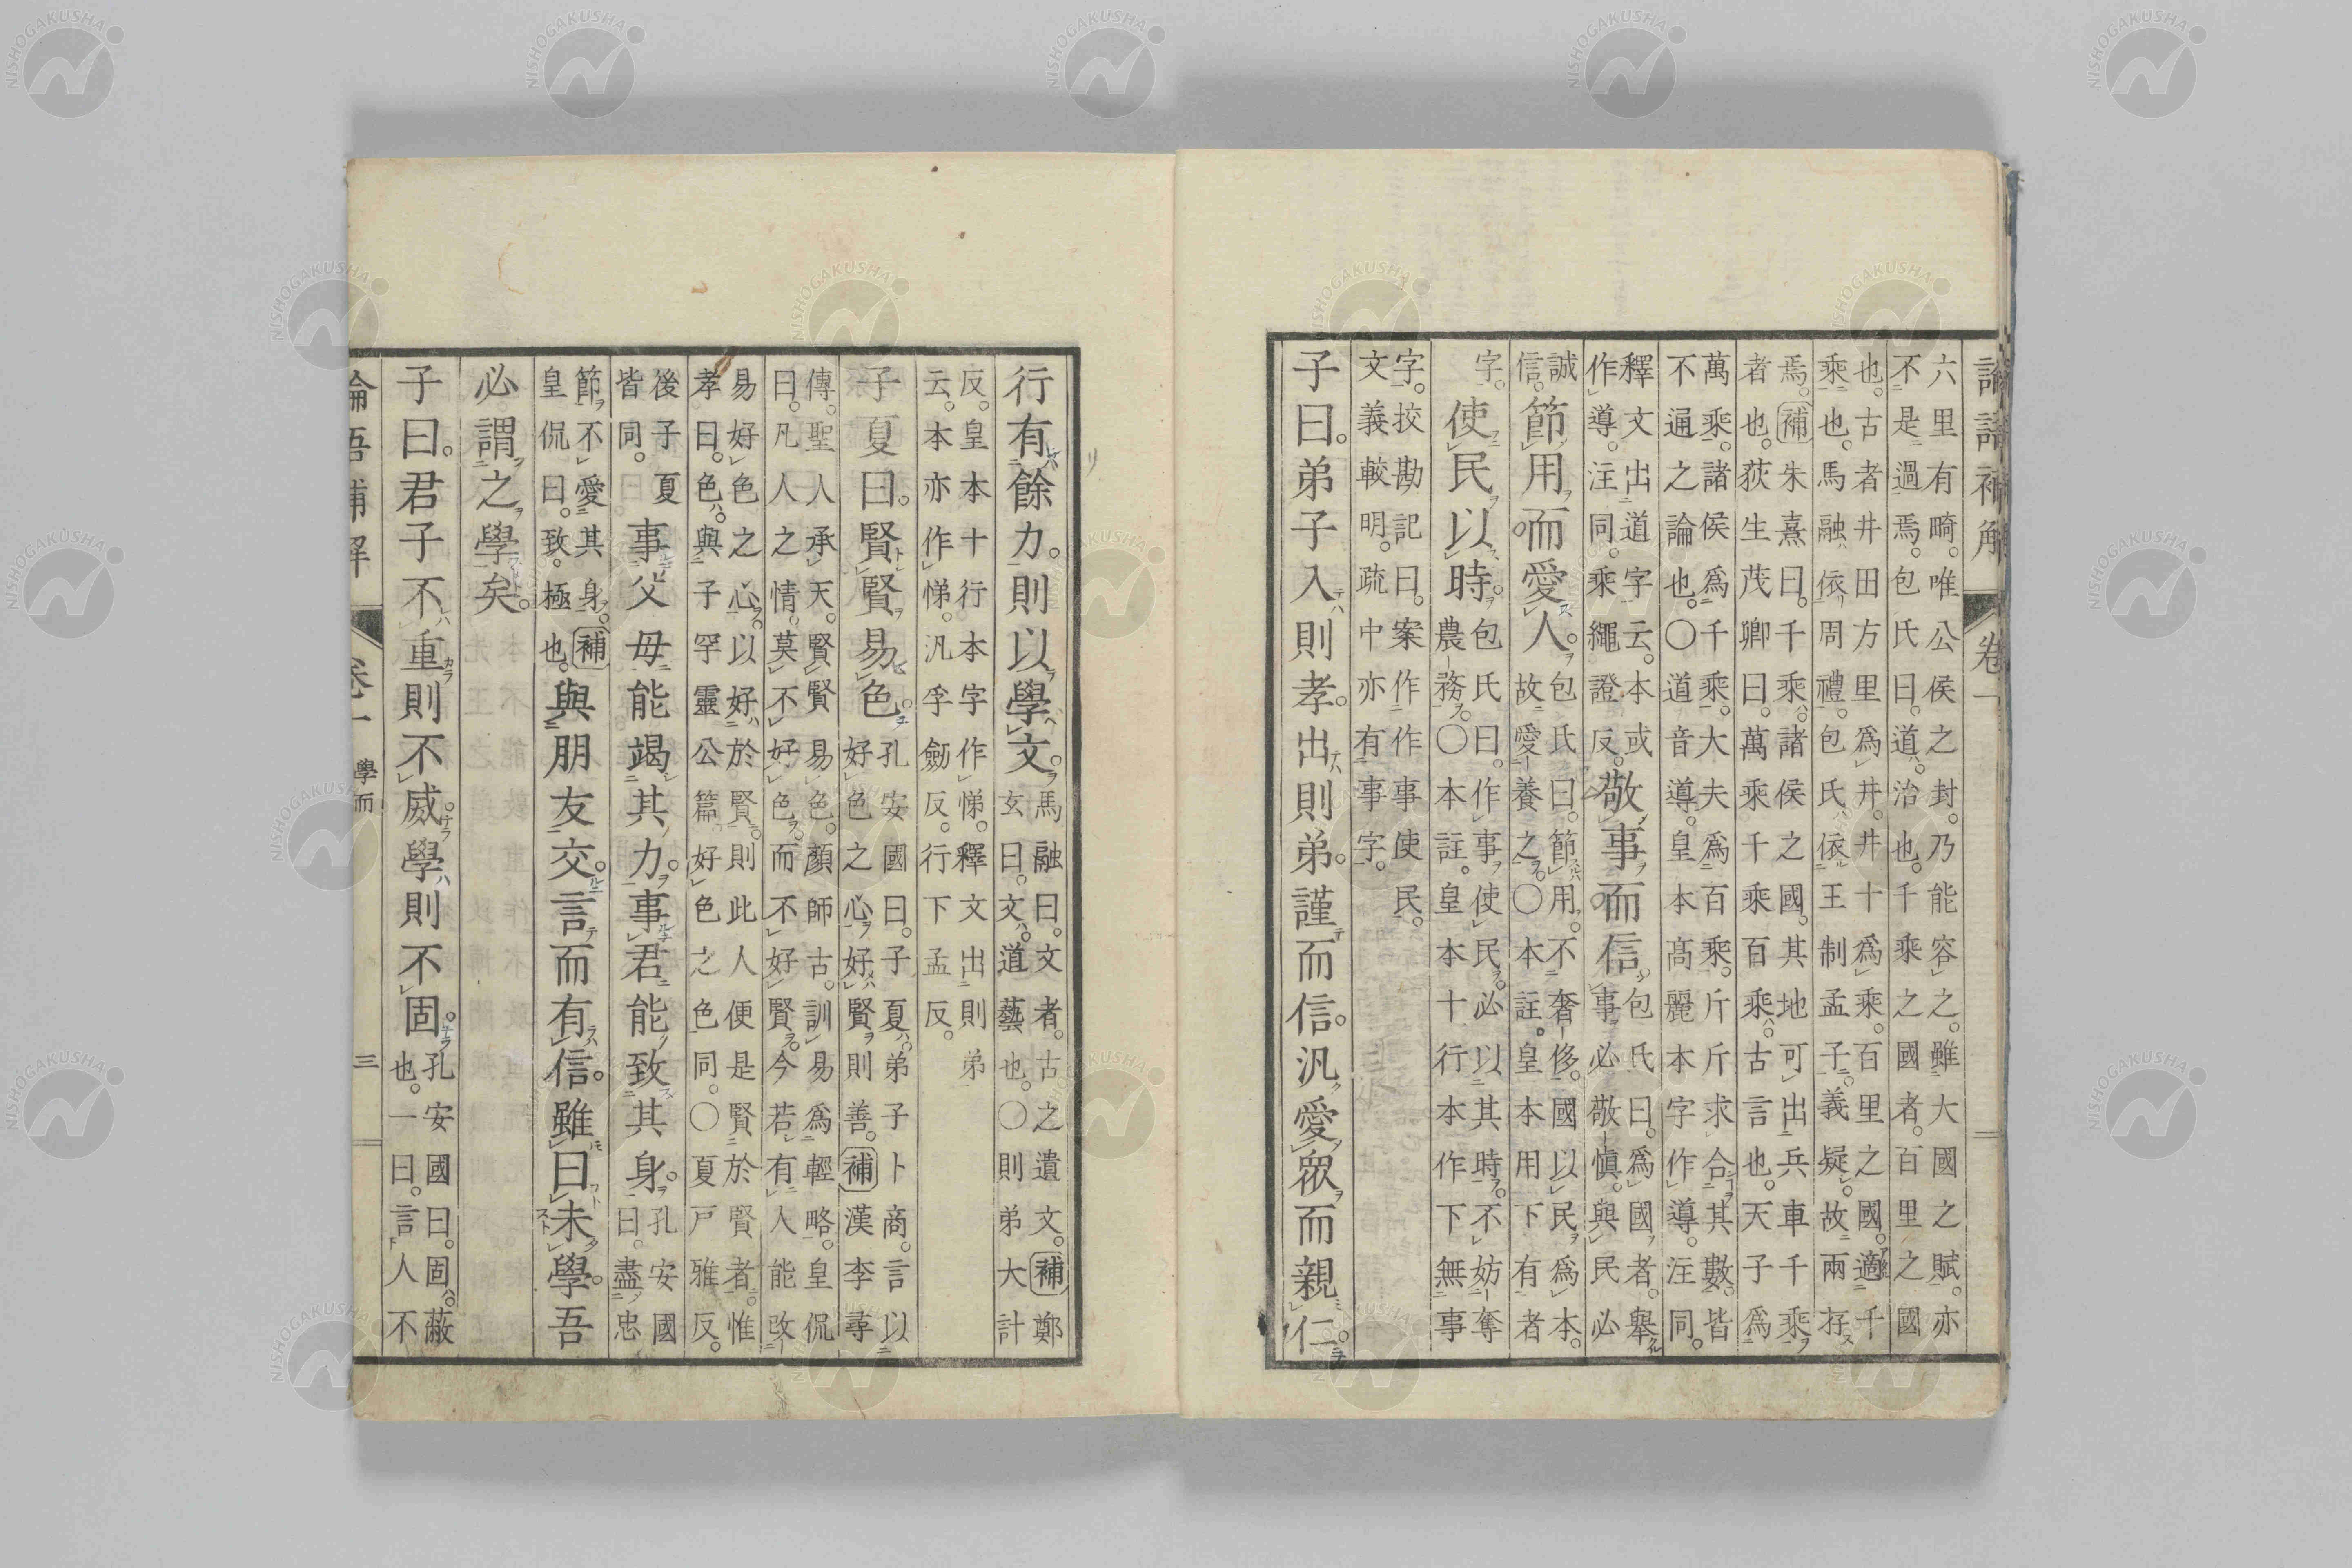 論語補解 卷一
六里有畸。唯公侯之封。乃能容之。雖大國之賦。亦
不是過焉。包氏曰。道。治也。千乘之國者。百里之國
也。古者井田方里爲井。井十爲乘。百里之國。適千
乘也。馬融依周禮。包氏依王制孟子。義疑。故兩存
焉。補朱熹曰。千乘。諸侯之國。其地可出兵車千乘
者也。荻生茂卿曰。萬乘千乘百乘。古言也。天子爲
萬乘。諸侯爲千乘。大夫爲百乘。斤斤求合其數。皆
不通之論也。〇道音導。皇本髙麗本字作導。注同。
釋文出道字云。本或
作導。注同。乘繩證反。
敬事而信
包氏曰。爲國者。舉
事必敬愼。與民必
誠
信。
節用而愛人。
包氏曰。節用。不奢侈。國以民爲本。
故愛養之。〇本註。皇本用下有者
字。
使民以時。
包氏曰。作事使民。必以其時。不妨奪
農務。〇本註。皇本十行本作下無事
字。挍勘記曰。案作作事使民。
文義較明。疏中亦有事字。
子曰。弟子入則孝。出則弟。謹而信。汎愛眾而親仁。
行有餘力。則以學文。
馬融曰。文者。古之遺文。補鄭
玄曰。文。道藝也。〇則弟大計
反。皇本十行本字作悌。釋文出則弟
云。本亦作悌。汎孚劒反。行下孟反。
子夏曰。賢賢易色。
孔安國曰。子夏。弟子卜商。言以
好色之心。好賢則善。補漢李尋
傳。聖人承天。賢賢易色。顏師古。訓易爲輕略。皇侃
曰。凡人之情。莫不好色。而不好賢。今若有人能改
易好色之心。以好於賢。則此人便是賢於賢者。惟
孝曰。色。與子罕靈公篇好色之色同。〇夏戸雅反。
後子夏
皆同。
事父毋能竭其力。事君能致其身。
孔安國
曰。盡忠
節不愛其身。補
皇侃曰。致。極也。
與朋友交。言而有信。雖曰未學。吾
必謂之學矣。
子曰。君子不重則不威學則不固。
孔安國曰。固。蔽
也。一曰。言人不
論吾補解 卷一 學而 三